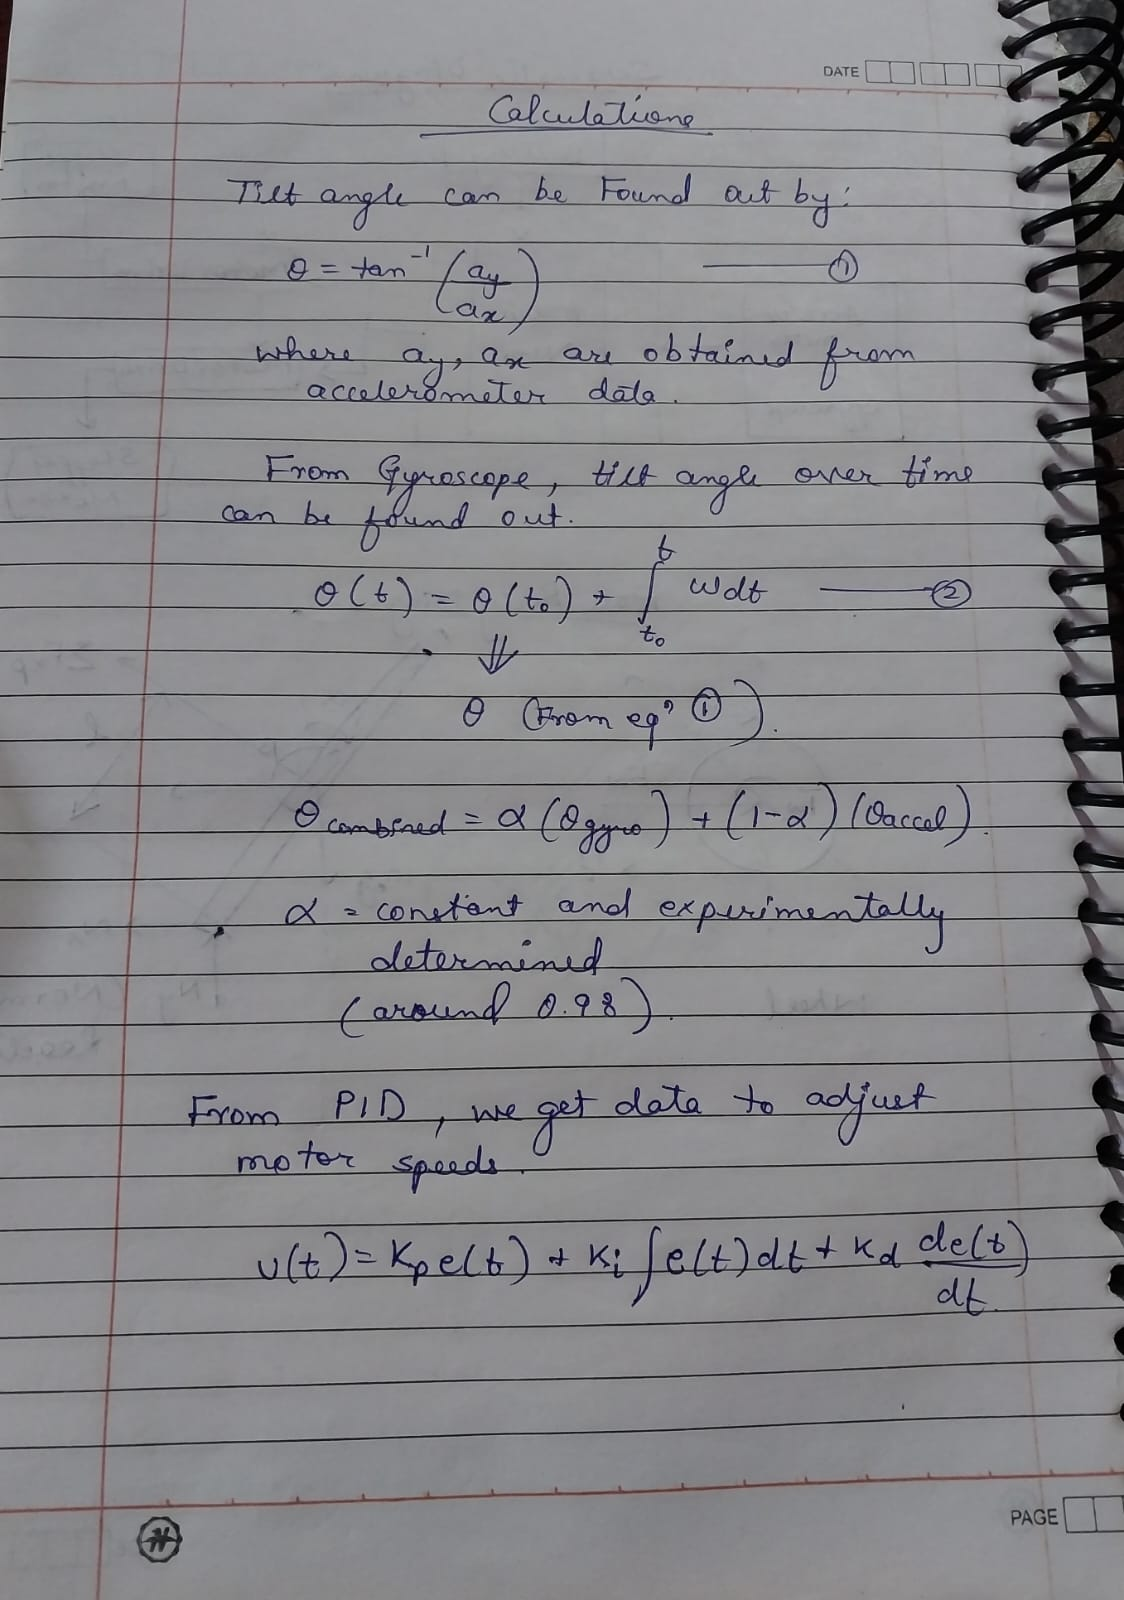 DATE
Calculations
Tilt angle can be Found out by:
θ = tan⁻¹ (ay/ax) ——— ①
where ay, ax are obtained from
accelerometer data.
From Gyroscope, tilt angle over time
can be found out.
θ(t) = θ(t₀) + ∫ₜ₀ᵗ ωdt ——— ②
⇓
θ (From eqⁿ ①).
θcombined = α(θgyro) + (1-α)(θaccel).
α = constant and experimentally
determined
(around 0.98).
From PID, we get data to adjust
motor speeds.
u(t) = Kp e(t) + Ki ∫e(t)dt + Kd de(t)/dt
PAGE